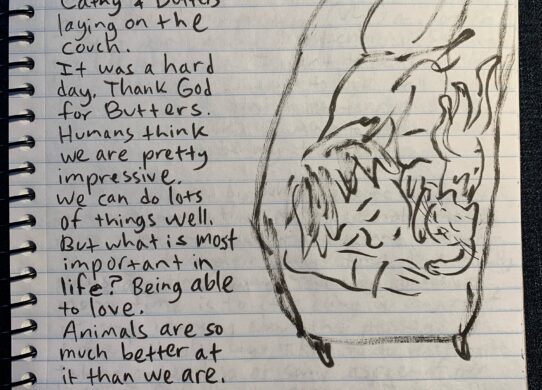 Cathy & Butters
laying on the
couch.
It was a hard
day. Thank God
for Butters.
Humans think
we are pretty
impressive.
We can do lots
of things well.
But what is most
important in
life? Being able
to love.
Animals are so
much better at
it than we are.